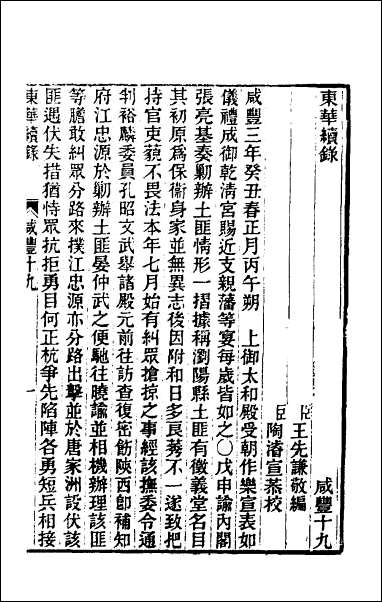 東華續錄 咸豐十九
臣王先謙敬編
臣陶濬宣恭校
咸豐三年癸丑春正月丙午朔 上御太和殿受朝作樂宣表如
儀禮成御乾清宮賜近支親藩等宴每歲皆如之〇戊申諭內閣
張亮基奏勦辦土匪情形一摺據稱瀏陽縣土匪有徵義堂名目
其初原爲保衞身家並無異志後因附和日多良莠不一遂致把
持官吏藐不畏法本年七月始有糾眾搶掠之事經該撫委令通
判裕麟委員孔昭文武舉諸殿元前往訪查復密飭陝西卽補知
府江忠源於勦辦土匪晏仲武之便馳往曉諭並相機辦理該匪
等膽敢糾眾分路來撲江忠源亦分路出擊並於唐家洲設伏該
匪遇伏失措猶恃眾抗拒勇目何正杭爭先陷陣各勇短兵相接
東華續錄 咸豐十九 一